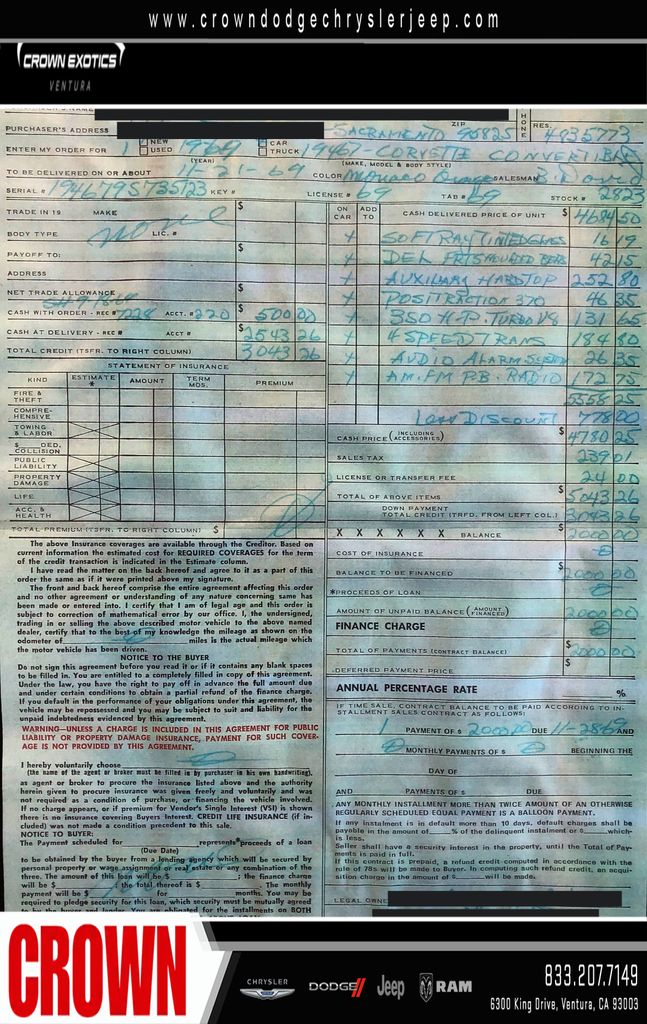 www.crowndodgechryslerjeep.com
CROWN EXOTICS
VENTURA
PURCHASER'S ADDRESS SACRAMENTO ZIP 95825 PHONE RES. 4835773
ENTER MY ORDER FOR 1 NEW USED 1969 (YEAR) CAR TRUCK 19467-CORVETTE CONVERTIBLE (MAKE, MODEL & BODY STYLE)
TO BE DELIVERED ON OR ABOUT 11-21-69 COLOR Monaco Orange SALESMAN
SERIAL # 194679S735723 KEY # LICENSE # 69 TAB # 69 STOCK # 2823
TRADE IN 19 MAKE $
BODY TYPE None LIC. #
PAYOFF TO: $
ADDRESS
NET TRADE ALLOWANCE
CASH WITH ORDER - REC # 7228 ACCT. # 220 $ 500 00
CASH AT DELIVERY - REC # ACCT # $ 2543 26
TOTAL CREDIT (TSFR. TO RIGHT COLUMN) $ 3043 26
STATEMENT OF INSURANCE
KIND ESTIMATE * AMOUNT TERM MOS. PREMIUM
FIRE & THEFT
COMPRE- HENSIVE
TOWING & LABOR
$ DED. COLLISION
PUBLIC LIABILITY
PROPERTY DAMAGE
LIFE
ACC. & HEALTH
TOTAL PREMIUM (TSFR. TO RIGHT COLUMN) $
The above Insurance coverages are available through the Creditor. Based on
current information the estimated cost for REQUIRED COVERAGES for the term
of the credit transaction is indicated in the Estimate column.
I have read the matter on the back hereof and agree to it as a part of this
order the same as if it were printed above my signature.
The front and back hereof comprise the entire agreement affecting this order
and no other agreement or understanding of any nature concerning same has
been made or entered into. I certify that I am of legal age and this order is
subject to correction of mathematical error by our office. I, the undersigned,
trading in or selling the above described motor vehicle to the above named
dealer, certify that to the best of my knowledge the mileage as shown on the
odometer of miles is the actual mileage which
the motor vehicle has been driven.
NOTICE TO THE BUYER
Do not sign this agreement before you read it or if it contains any blank spaces
to be filled in. You are entitled to a completely filled in copy of this agreement.
Under the law, you have the right to pay off in advance the full amount due
and under certain conditions to obtain a partial refund of the finance charge.
If you default in the performance of your obligations under this agreement, the
vehicle may be repossessed and you may be subject to suit and liability for the
unpaid indebtedness evidenced by this agreement.
WARNING—UNLESS A CHARGE IS INCLUDED IN THIS AGREEMENT FOR PUBLIC
LIABILITY OR PROPERTY DAMAGE INSURANCE, PAYMENT FOR SUCH COVER-
AGE IS NOT PROVIDED BY THIS AGREEMENT.
I hereby voluntarily choose
(the name of the agent or broker must be filled in by purchaser in his own handwriting),
as agent or broker to procure the insurance listed above and the authority
herein given to procure insurance was given freely and voluntarily and was
not required as a condition of purchase, or financing the vehicle involved.
If no charge appears, or if premium for Vendor's Single Interest (VSI) is shown
there is no insurance covering Buyers Interest. CREDIT LIFE INSURANCE (if in-
cluded) was not made a condition precedent to this sale.
NOTICE TO BUYER:
The Payment scheduled for represents proceeds of a loan
(Due Date)
to be obtained by the buyer from a lending agency which will be secured by
personal property or wage assignment or real estate or any combination of the
three. The amount of this loan will be $ ; the finance charge
will be $ ; the total thereof is $ The monthly
payment will be $ for months. You may be
required to pledge security for this loan, which security must be mutually agreed
to by the buyer and lender. You are obligated for the installments on BOTH
ON CAR ADD TO CASH DELIVERED PRICE OF UNIT $ 4684 50
X SOFTRAY TINTED GLASS 16 19
X 42 15
X AUXILIARY HARDTOP 252 80
X POSITRACTION 370 46 35
X 350 H.P. TURBO V8 131 65
X 4 SPEED TRANS 184 80
X AUDIO ALARM SYSTEM 26 35
X AM. FM P.B. RADIO 172 75
5558 25
Less DISCOUNT 778 00
CASH PRICE (INCLUDING ACCESSORIES) $ 4780 25
SALES TAX 239 01
LICENSE OR TRANSFER FEE 24 00
TOTAL OF ABOVE ITEMS $ 5043 26
DOWN PAYMENT
TOTAL CREDIT (TRFD. FROM LEFT COL.) 3043 26
X X X X X X BALANCE $ 2000 00
COST OF INSURANCE
BALANCE TO BE FINANCED $ 2000 00
*PROCEEDS OF LOAN
AMOUNT OF UNPAID BALANCE (AMOUNT FINANCED) 2000 00
FINANCE CHARGE
TOTAL OF PAYMENTS (CONTRACT BALANCE) $ 2000 00
DEFERRED PAYMENT PRICE $
ANNUAL PERCENTAGE RATE %
IF TIME SALE, CONTRACT BALANCE TO BE PAID ACCORDING TO IN-
STALLMENT SALES CONTRACT AS FOLLOWS:
1 PAYMENT OF $ 2000.00 DUE 11-28-69 AND
MONTHLY PAYMENTS OF $ BEGINNING THE
DAY OF
AND PAYMENTS OF $ DUE
ANY MONTHLY INSTALLMENT MORE THAN TWICE AMOUNT OF AN OTHERWISE
REGULARLY SCHEDULED EQUAL PAYMENT IS A BALLOON PAYMENT.
If any instalment is in default more than 10 days, default charges shall be
payable in the amount of % of the delinquent instalment or $ which-
is less.
Seller shall have a security interest in the property, until the Total of Pay-
ments is paid in full.
If this contract is prepaid, a refund credit computed in accordance with the
rule of 78s will be made to Buyer. In computing such refund credit, an acqui-
sition charge in the amount of $ will be made.
LEGAL OWNE
CROWN
CHRYSLER DODGE Jeep RAM
833.207.7149
6300 King Drive, Ventura, CA 93003